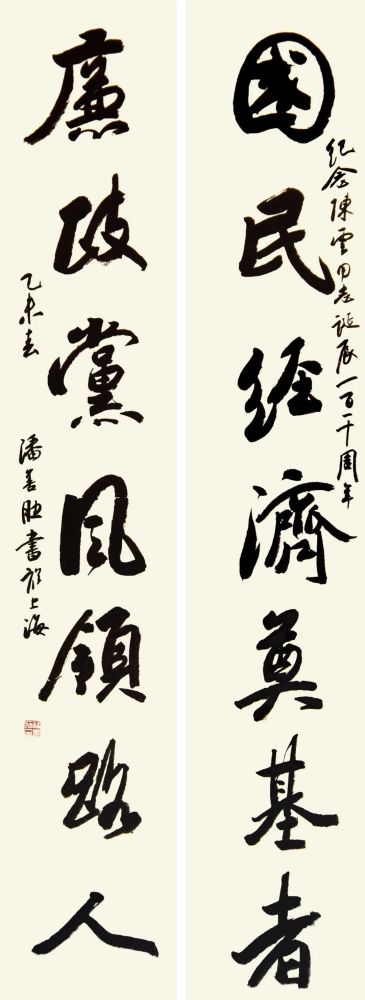 國民经濟奠基者
纪念陳雲同志誕辰一百一十周年
廉政黨风領路人
乙未春
潘善助書於上海